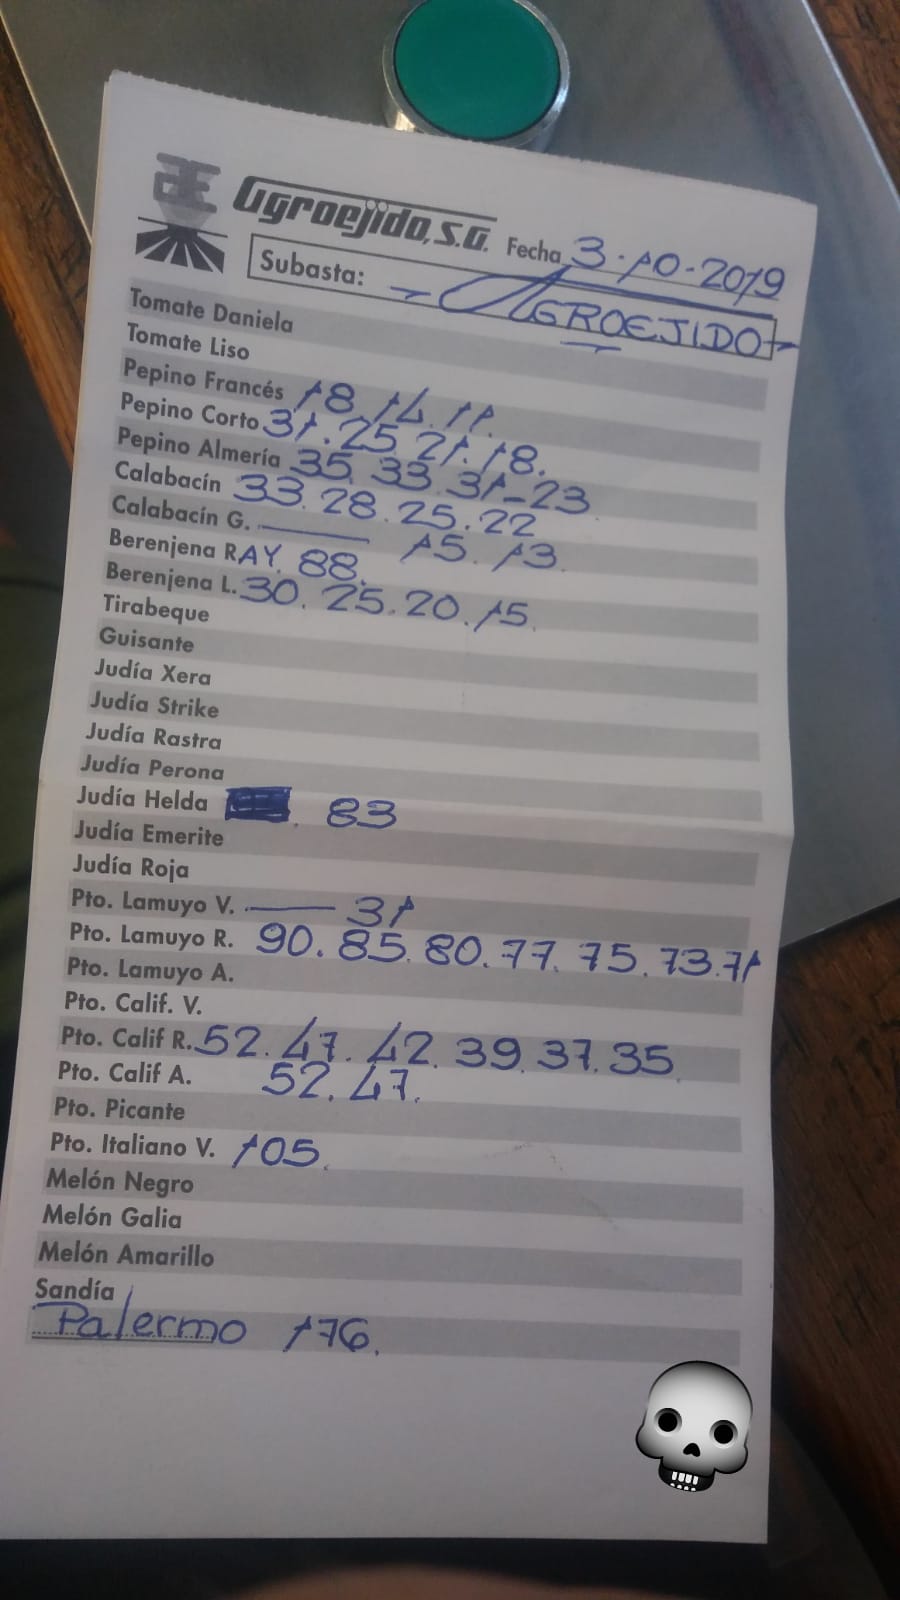 Agroejido, S.A. Fecha 3-10-2019
Subasta: AGROEJIDO
Tomate Daniela
Tomate Liso
Pepino Francés 18. 14. 11.
Pepino Corto 31. 25. 21. 18.
Pepino Almería 35. 33. 31-23
Calabacín 33. 28. 25. 22
Calabacín G. — 15. 13.
Berenjena RAY. 88.
Berenjena L. 30. 25. 20. 15.
Tirabeque
Guisante
Judía Xera
Judía Strike
Judía Rastra
Judía Perona
Judía Helda . 83
Judía Emerite
Judía Roja
Pto. Lamuyo V. — 31
Pto. Lamuyo R. 90. 85. 80. 77. 75. 73. 71
Pto. Lamuyo A.
Pto. Calif. V.
Pto. Calif R. 52. 47. 42. 39. 37. 35
Pto. Calif A. 52. 47.
Pto. Picante
Pto. Italiano V. 105.
Melón Negro
Melón Galia
Melón Amarillo
Sandía
Palermo 176.